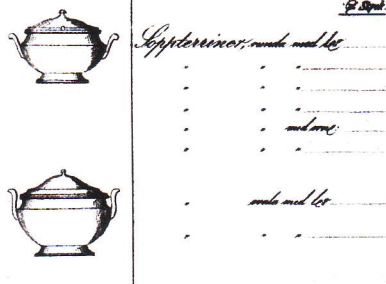 Soppterriner, runda med lov
" " "
" " "
" " "
" " med
" " "
" ovala med lov
" " "